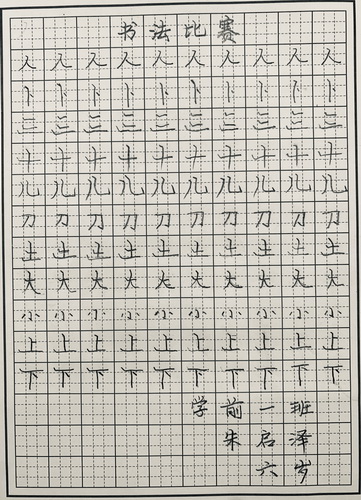 书法比赛
人人人人人人人人人人
卜卜卜卜卜卜卜卜卜卜
三三三三三三三三三三
十十十十十十十十十十
儿儿儿儿儿儿儿儿儿儿
刀刀刀刀刀刀刀刀刀刀
土土土土土土土土土土
大大大大大大大大大大
小小小小小小小小小小
上上上上上上上上上上
下下下下下下下下下下
学前一班
朱启泽
六岁